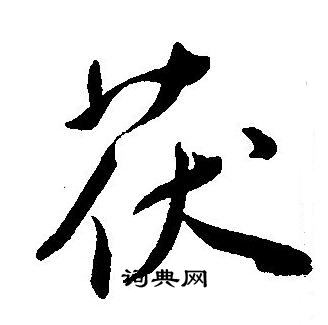 茯
词典网